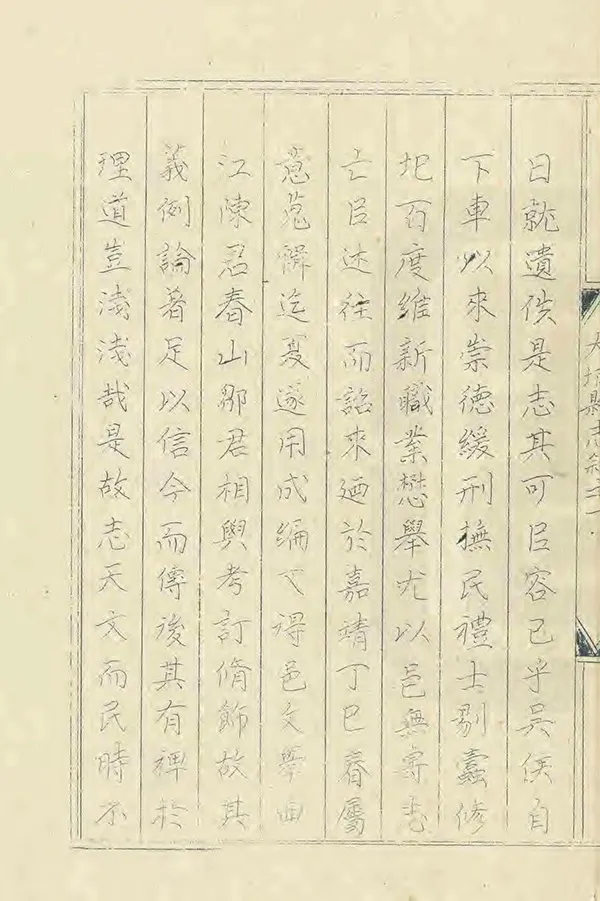 日就遺佚是志其可㠯容已乎吳侯自
下車以來崇德緩刑撫民禮士剔蠹修
圮百度維新職業懋舉尤以邑無專志
亡㠯述往而詔來廼於嘉靖丁巳春屬
蒐緝迄夏遂用成編又得邑文學曲
江陳君春山鄒君相與考訂脩飾故其
義例論著足以信今而傳後其有裨於
理道豈淺淺哉是故志天文而民時不
縣志